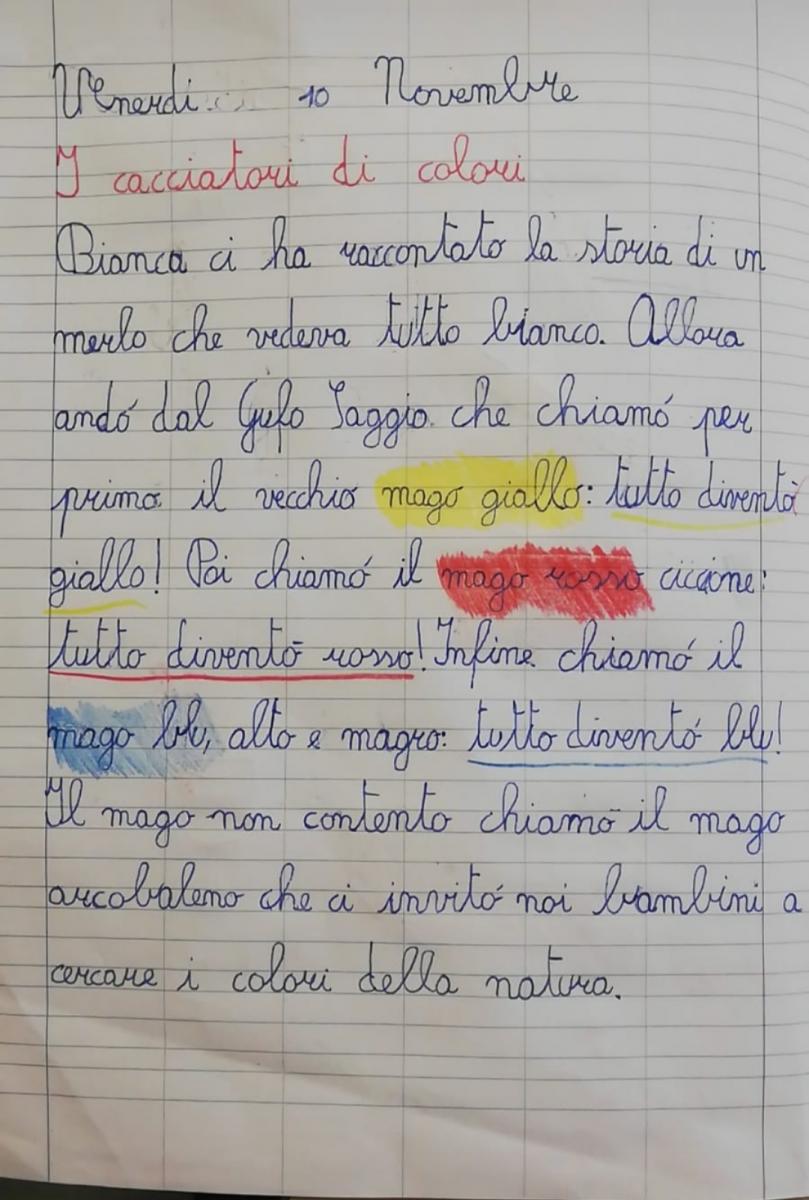 Venerdi 10 Novembre
I cacciatori di colori
Bianca ci ha raccontato la storia di un
merlo che vedeva tutto bianco. Allora
andó dal Gufo Saggio che chiamó per
primo il vecchio mago giallo: tutto diventò
giallo! Poi chiamó il mago rosso ciccione:
tutto diventò rosso! Infine chiamó il
mago blu, alto e magro: tutto diventó blu!
Il mago non contento chiamò il mago
arcobaleno che ci invitó noi bambini a
cercare i colori della natura.